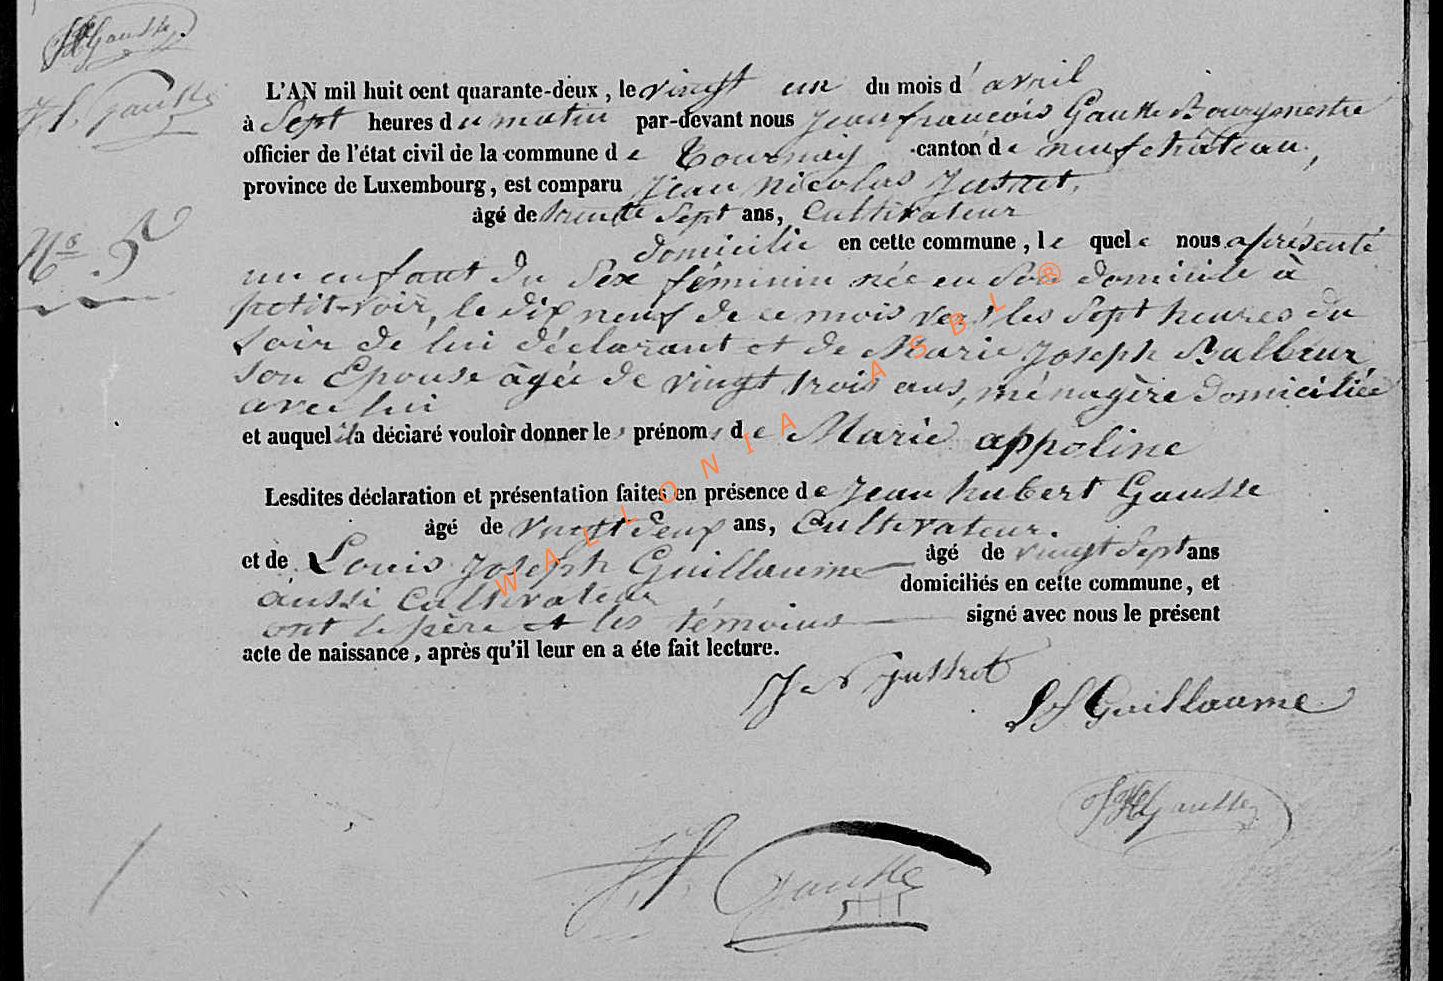 JHGausse
J. f. Gausse
L'AN mil huit cent quarante-deux, le vingt un du mois d'avril
à Sept heures du matin par-devant nous Jean françois Gausse Bourgmestre
officier de l'état civil de la commune de Tournay canton de neufchâteau,
province de Luxembourg, est comparu Jean nicolas Jusret,
âgé de trente Sept ans, Cultivateur
domicilié en cette commune, le quel nous a présenté
N° 5
un enfant du Sex féminin née en Son domicile à
petit-voir, le dix neuf de ce mois vers les Sept heures du
Soir de lui déclarant et de Marie Joseph
Son Epouse âgée de vingt trois ans, ménagère domiciliée
avec lui
et auquel il a déclaré vouloir donner les prénoms de Marie appoline
Lesdites déclaration et présentation faites en présence de Jean hubert Gausse
âgé de vingt deux ans, Cultivateur.
et de Louis Joseph Guillaume âgé de vingt Sept ans
aussi Cultivateur domiciliés en cette commune, et
ont le père et les témoins signé avec nous le présent
acte de naissance, après qu'il leur en a éte fait lecture.
J N Jusret
LJ Guillaume
JHGausse
J. f. Gausse
WALLONIA ASBL ®